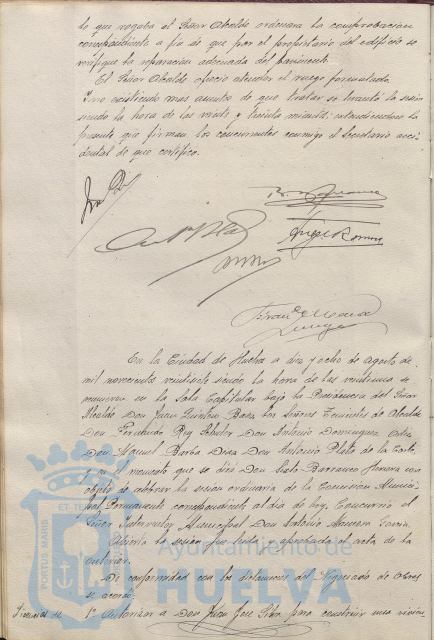 lo que rogaba al Señor Alcalde ordenara la comprobación
correspondiente a fin de que por el propietario del edificio se
verifique la reparación adecuada del pavimento.
El Señor Alcalde ofreció atender el ruego formulado.
Y no existiendo mas asuntos de que tratar se levantó la sesión
siendo la hora de las veinte y treinta minutos, extendiendose la
presente que firman los concurrentes conmigo el Secretario acci-
dental de que certifico.
En la Ciudad de Huelva a diez y ocho de Agosto de
mil novecientos veintisiete siendo la hora de las
reunieron en la Sala Capitular bajo la Presidencia del Señor
Alcalde Don Juan Quintero Baez los Señores Tenientes de Alcalde
Don Fernando Rey Don Antonio Dominguez
Don Miguel Barba Don Antonio Plata de la Corte,
y en el momento que se dirá Don Sixto Barranco con
objeto de celebrar la sesión ordinaria de la Comisión Munici-
pal Permanente correspondiente al dia de hoy. Concurrió el
Señor Interventor Municipal Don Antonio García
Abierta la sesión fue leida y aprobada el acta de la
anterior.
De conformidad con los dictamenes del Negociado de Obras
se acordó:
Licencias de
1º Autorizar a Don Juan José para construir una
PORTUS MARIS
ET TE
Ayuntamiento de
HUELVA